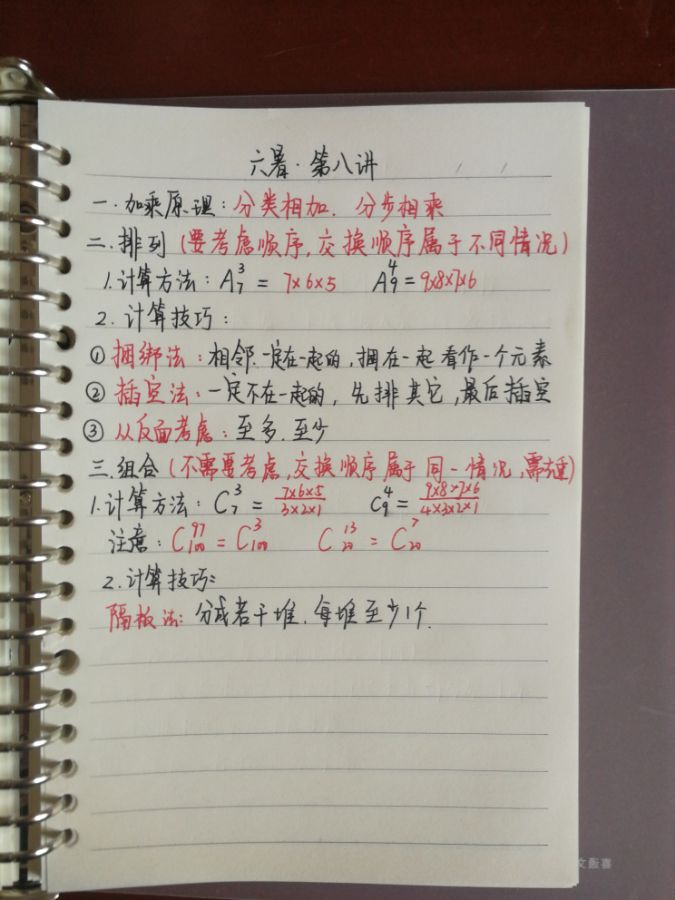 六暑·第八讲
一.加乘原理:分类相加.分步相乘
二.排列(要考虑顺序,交换顺序属于不同情况)
1.计算方法:A₇³=7×6×5 A₉⁴=9×8×7×6
2.计算技巧:
①捆绑法:相邻.一定在一起的,捆在一起看作一个元素
②插空法:一定不在一起的,先排其它,最后插空
③从反面考虑:至多.至少
三.组合(不需要考虑,交换顺序属于同一情况,需去重)
1.计算方法:C₇³=7×6×5/3×2×1 C₉⁴=9×8×7×6/4×3×2×1
注意:C₁₀₀⁹⁷=C₁₀₀³ C₂₀¹³=C₂₀⁷
2.计算技巧:
隔板法:分成若干堆.每堆至少1个.